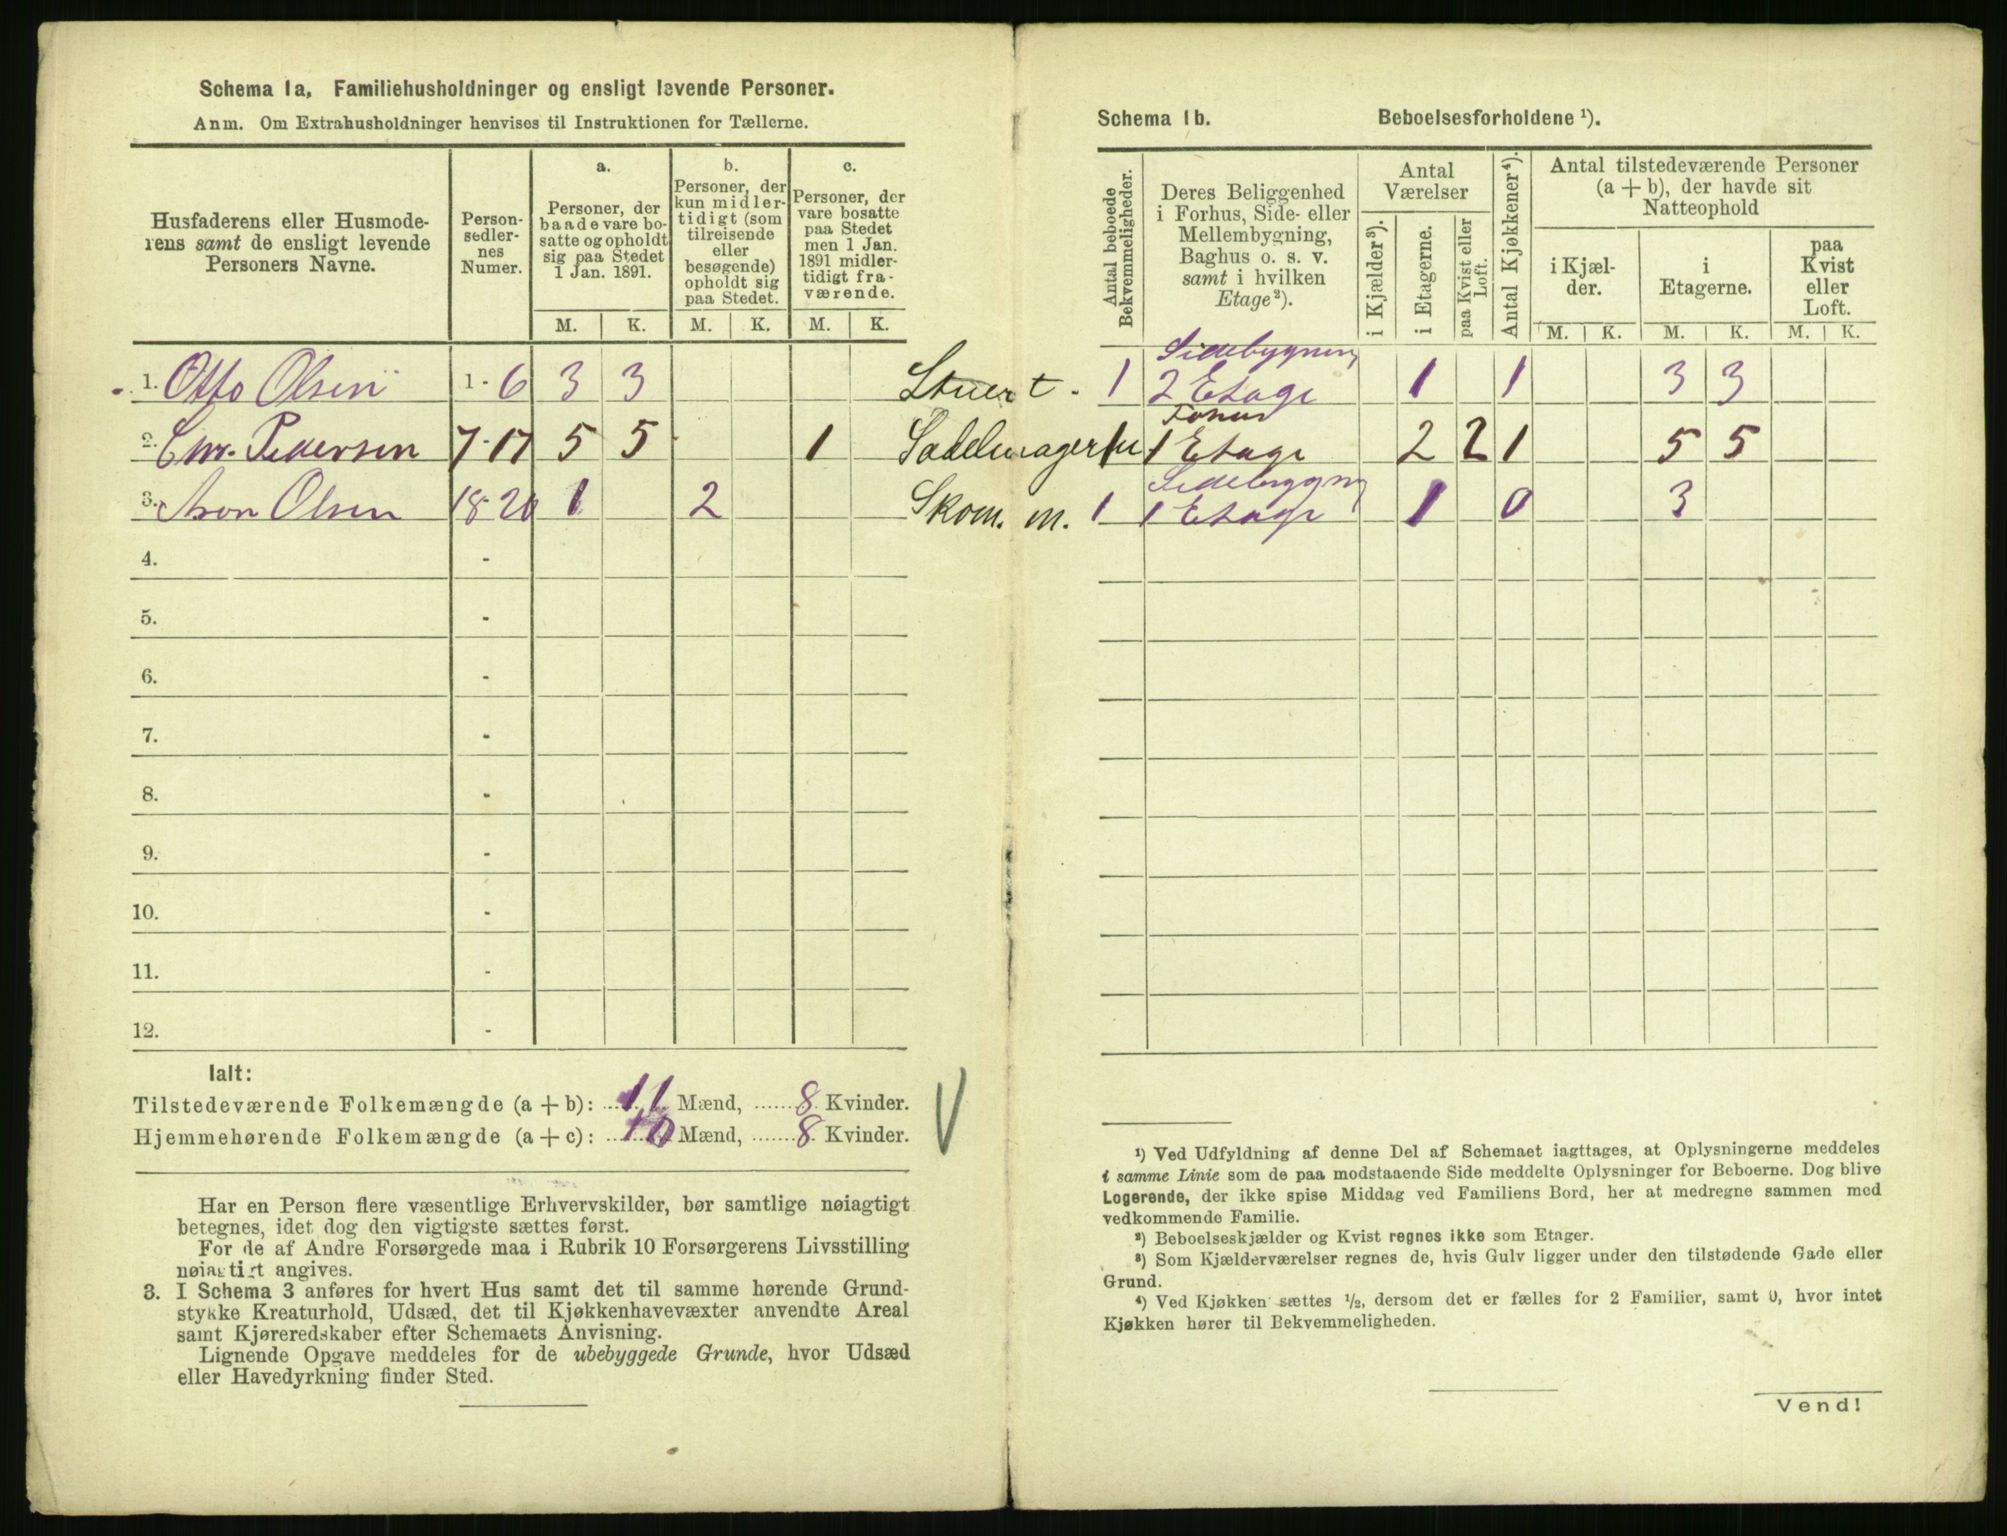 Schema 1a. Familiehusholdninger og ensligt levende Personer.
Anm. Om Extrahusholdninger henvises til Instruktionen for Tællerne.
Husfaderens eller Husmoderens samt de ensligt levende Personers Navne.
Personsedlernes Numer.
a. Personer, der baade vare bosatte og opholdt sig paa Stedet 1 Jan. 1891.
b. Personer, der kun midlertidigt (som tilreisende eller besøgende) opholdt sig paa Stedet.
c. Personer, der vare bosatte paa Stedet men 1 Jan. 1891 midlertidigt fraværende.
M. K. M. K. M. K.
1. Otto Olsen 1-6 3 3
2. Chr. Pedersen 7-17 5 5 1
3. Aron Olsen 18-20 1 2
4. -
5. -
6. -
7. -
8. -
9. -
10. -
11. -
12. -
Ialt:
Tilstedeværende Folkemængde (a + b): 11 Mænd, 8 Kvinder.
Hjemmehørende Folkemængde (a + c): 10 Mænd, 8 Kvinder.
Har en Person flere væsentlige Erhvervskilder, bør samtlige nøiagtigt
betegnes, idet dog den vigtigste sættes først.
For de af Andre Forsørgede maa i Rubrik 10 Forsørgerens Livsstilling
nøiagtigt angives.
3. I Schema 3 anføres for hvert Hus samt det til samme hørende Grund-
stykke Kreaturhold, Udsæd, det til Kjøkkenhavevæxter anvendte Areal
samt Kjøreredskaber efter Schemaets Anvisning.
Lignende Opgave meddeles for de ubebyggede Grunde, hvor Udsæd
eller Havedyrkning finder Sted.
Schema 1b. Beboelsesforholdene ¹).
Antal beboede Bekvemmeligheder.
Deres Beliggenhed i Forhus, Side- eller Mellembygning, Baghus o. s. v. samt i hvilken Etage²).
Antal Værelser
i Kjælder³).
i Etagerne.
paa Kvist eller Loft.
Antal Kjøkkener⁴).
Antal tilstedeværende Personer (a + b), der havde sit Natteophold
i Kjælder.
i Etagerne.
paa Kvist eller Loft.
M. K. M. K. M. K.
1 Sidebygning 2 Etage 1 1 3 3
Sadelmager 1 1 Etage 2 2 1 5 5
Skom. m. 1 Sidebygning 1 Etage 1 0 3
¹) Ved Udfyldning af denne Del af Schemaet iagttages, at Oplysningerne meddeles
i samme Linie som de paa modstaaende Side meddelte Oplysninger for Beboerne. Dog blive
Logerende, der ikke spise Middag ved Familiens Bord, her at medregne sammen med
vedkommende Familie.
²) Beboelseskjælder og Kvist regnes ikke som Etager.
³) Som Kjælderværelser regnes de, hvis Gulv ligger under den tilstødende Gade eller
Grund.
⁴) Ved Kjøkken sættes ½, dersom det er fælles for 2 Familier, samt 0, hvor intet
Kjøkken hører til Bekvemmeligheden.
Vend!